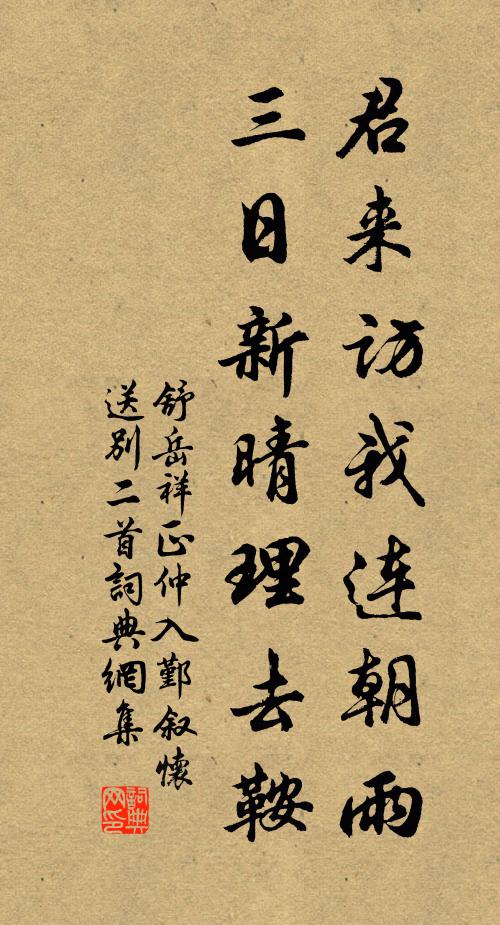 君来访我连朝雨
三日新晴理去鞍
舒岳祥正仲入鄞叙懷
送别二首詞典網集
詞典
网印